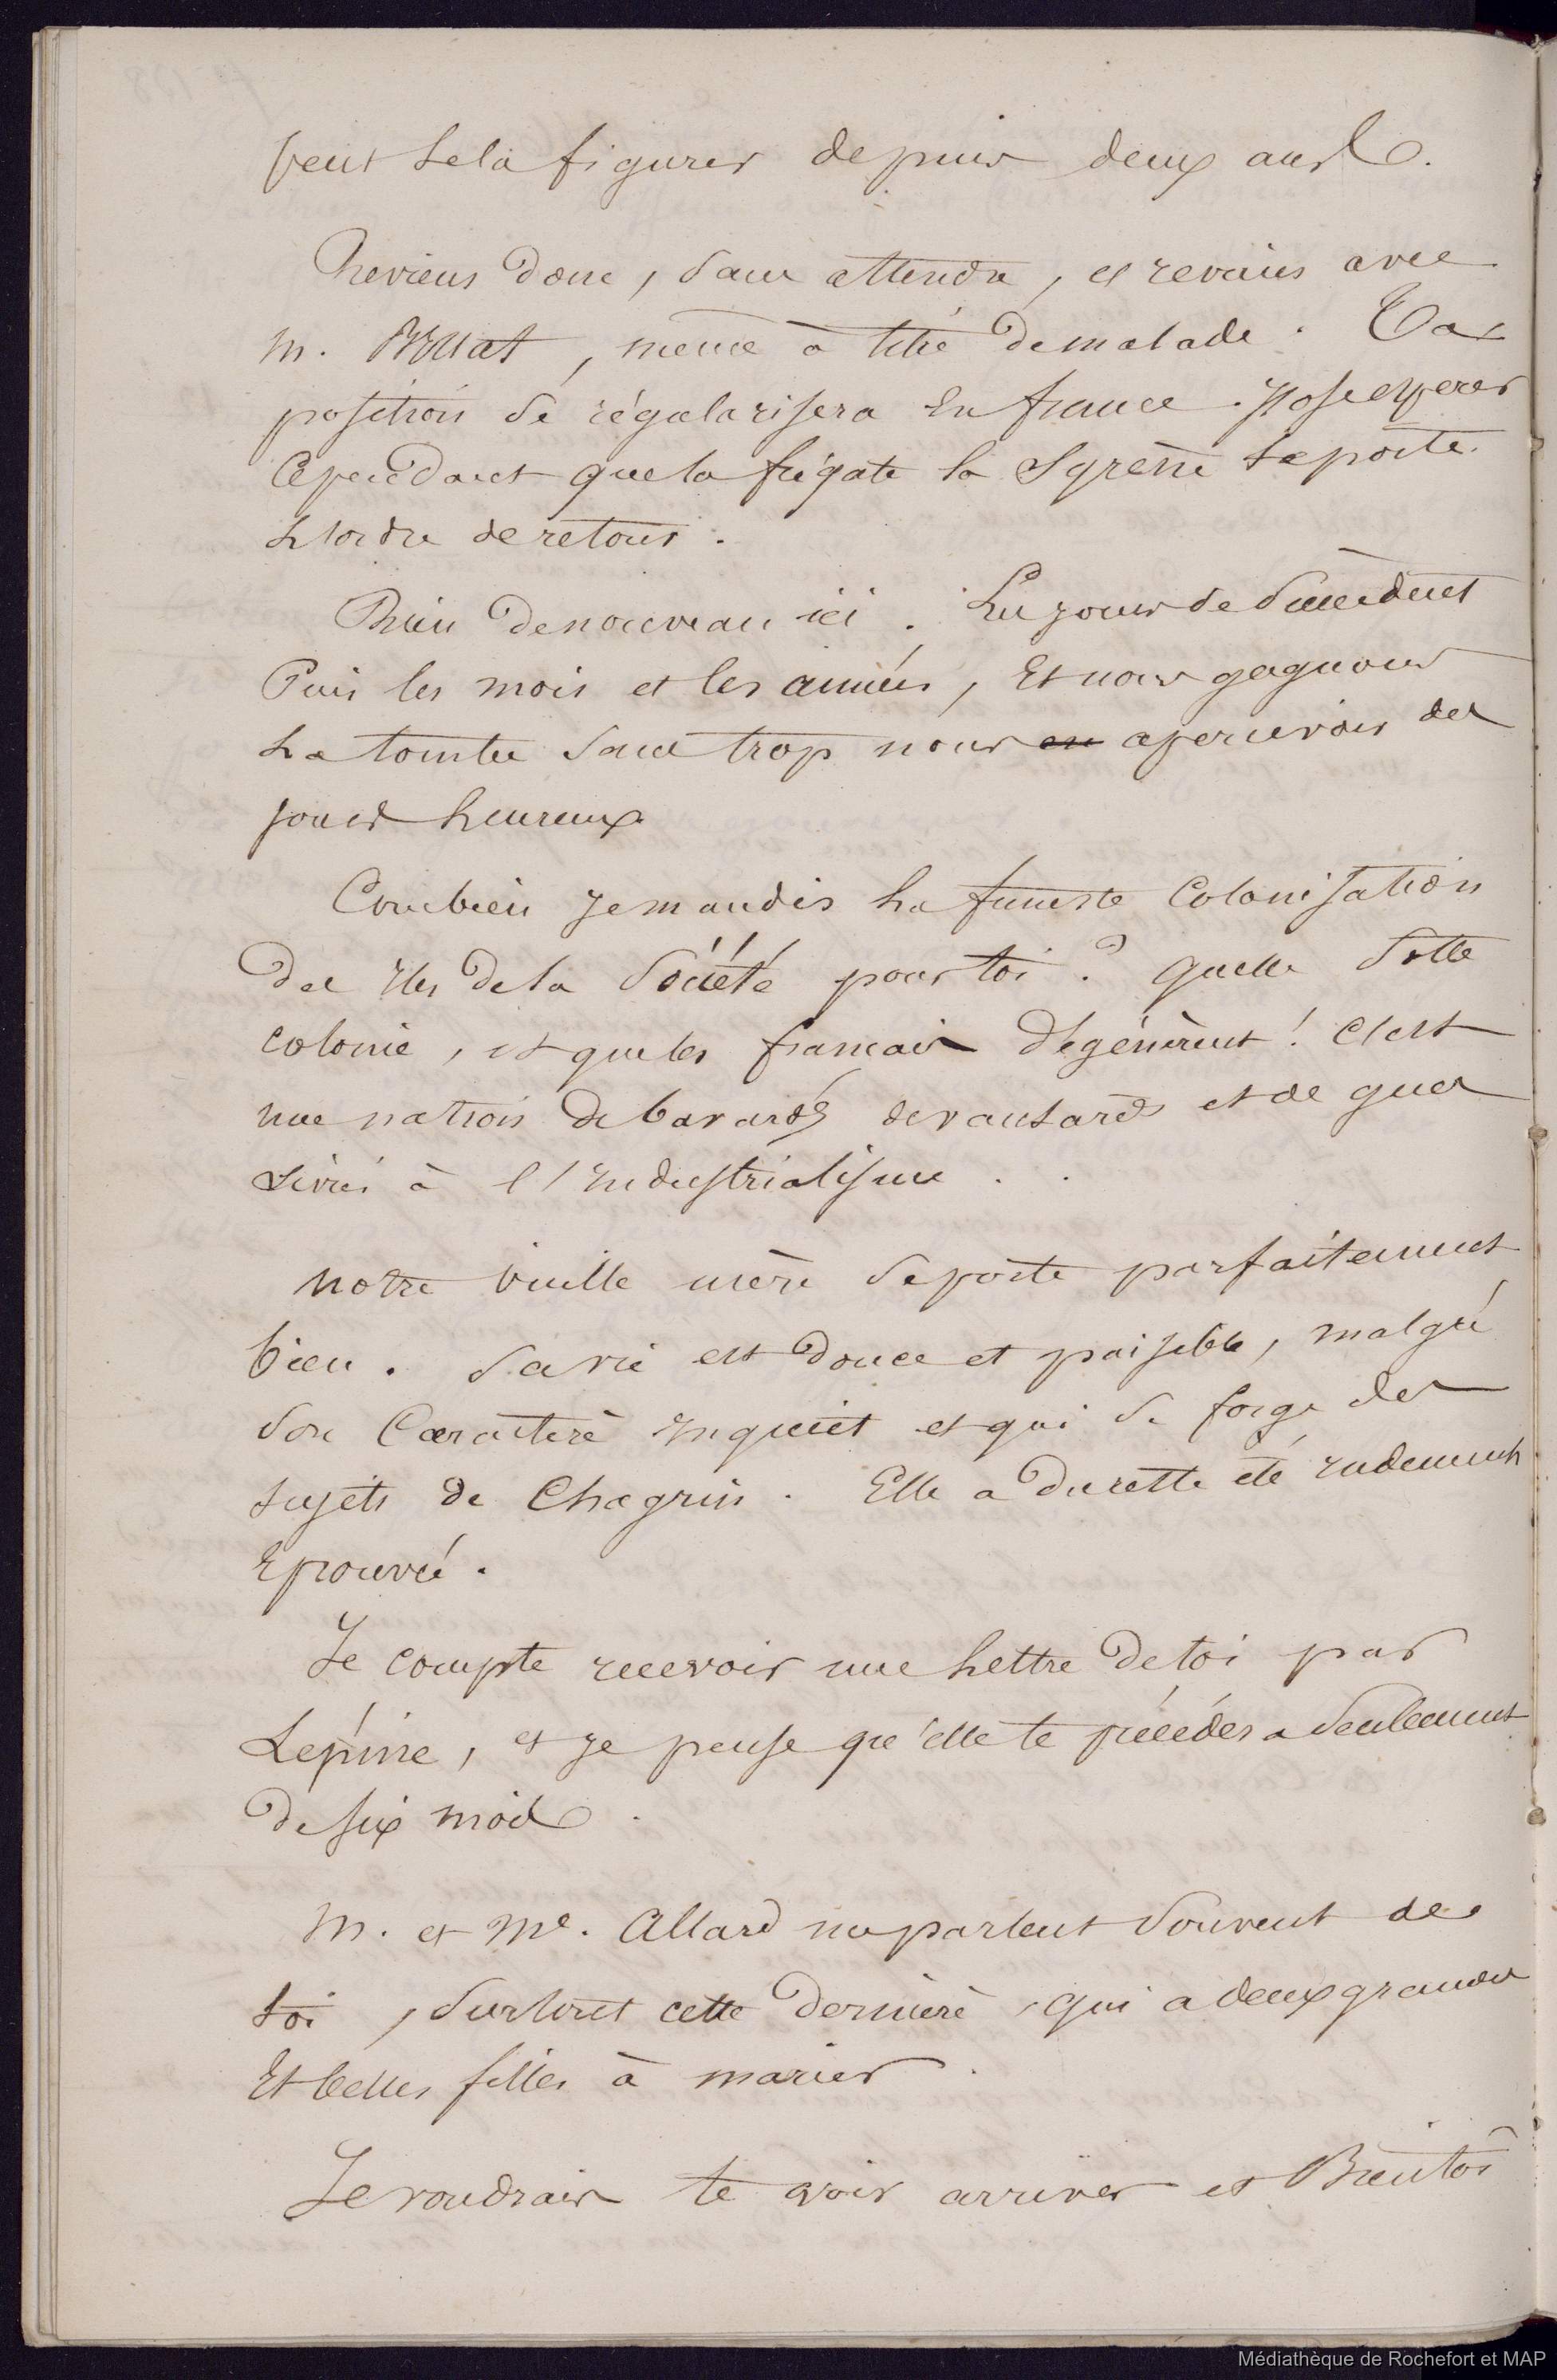 peut se la figurer depuis deux ans.
Reviens donc, sans attendre, et reviens avec
M. Bruat, même à titre de malade. Ta
position se régularisera en france. J'ose espérer
Cependant que la frégate la Syrène te porte
l'ordre de retour.
Rien de nouveau ici. Les jours se succèdent
Puis les mois et les années, Et nous gagnons
La tombe sans trop nous apercevoir des
jours heureux
Combien je maudis la funeste Colonisation
des Iles de la Société pour toi ? quelle sotte
colonie, et que les francais dégénèrent ! C'est
une nation de bavards de vantards et de gueux
livrés à l'Industrialisme . .
notre vieille mère se porte parfaitement
bien. Sa vie est douce et paisible, malgré
son Caractère inquiet et qui se forge des
sujets de Chagrin. Elle a du reste été rudement
Eprouvée.
Je compte recevoir une Lettre de toi par
Lépine, et je pense qu'elle te précédera seulement
de six mois.
M. et Me. Allard me parlent souvent de
toi, surtout cette dernière, qui a deux grandes
Et belles filles à marier.
Je voudrais te voir arriver et Bientôt
Médiathèque de Rochefort et MAP